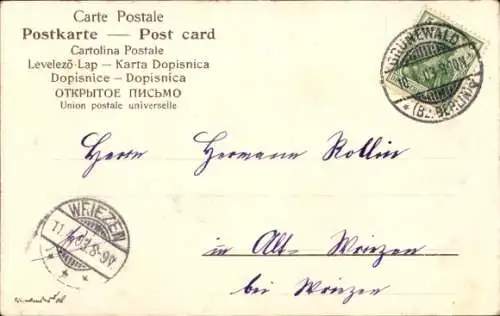 Carte Postale
Postkarte — Post card
Cartolina Postale
Levelező-Lap — Karta Dopisnica
Dopisnice — Dopisnica
ОТКРЫТОЕ ПИСЬМО
Union postale universelle
GRUNEWALD
(BZ. BERLIN)
Herrn Hermann Rollin
WRIEZEN
in Alt-Wriezen
bei Wriezen